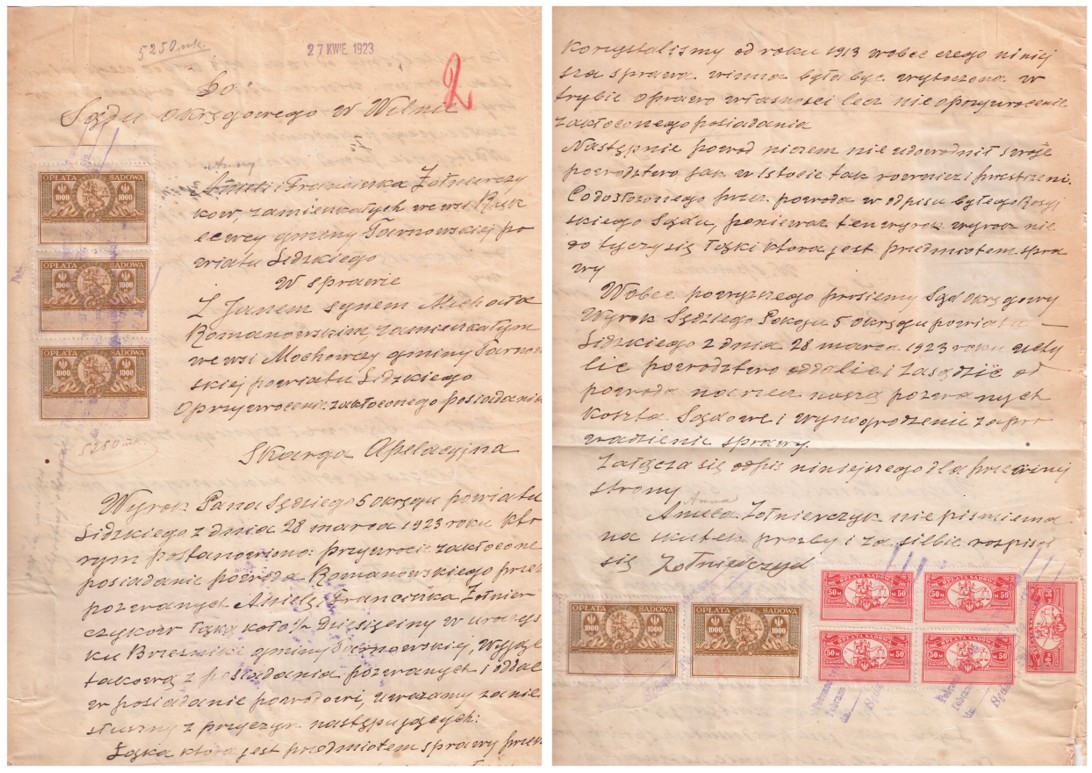 5250 mk.
27 KWIE. 1923
2
Do
Sądu Okręgowego w Wilnie
i Franciszka Żołnierczy
ków, zamieszkałych we wsi
gminy Tarnowskiej po
wiatu Lidzkiego
W sprawie
Z Janem synem Michała
Romanowskim, zamieszkałym
we wsi Mochowczy gminy Tarno
skiej powiatu Lidzkiego
O przywrócenie zakłóconego posiadania
Skarga Apelacyjna
Wyrok Pana Sędziego 5 okręgu powiatu
Lidzkiego z dnia 28 marca 1923 roku któ
rym postanowiono: przywrócić zakłócone
posiadanie powoda Romanowskiego przez
pozwanych Anielę i Franciszka Żołnier
czyków łąką koło 1/2 dziesięciny w uroczys
ku gminy Tarnowskiej,
takową z posiadania pozwanych i oddać
w posiadanie powodowi, uważamy za nie
słuszny z przyczyn następujących:
Łąka która jest przedmiotem sprawy
OPŁATA SĄDOWA
1000 1000
OPŁATA SĄDOWA
1000 1000
OPŁATA SĄDOWA
1000 1000
5250 mk.
Korzystaliśmy od roku 1913 wobec czego niniej
sza sprawa winna była być wytoczona w
trybie o prawo własności lecz nie o przywrócenie
zakłóconego posiadania
Następnie powód niczem nie udowodnił swoje
powództwo jak w istocie tak również i przestrzeni.
Co do złożonego przez powoda w odpisu byłego Rosyj
skiego Sądu, ponieważ ten wyrok nie
do tyczy się łąki która jest przedmiotem spra
wy
Wobec powyższego prosimy Sąd Okręgowy
Wyrok Sędziego Pokoju 5 okręgu powiatu
Lidzkiego z dnia 28 marca 1923 roku uchy
lić powództwo oddalić i zasądzić od
powoda na rzecz naszą pozwanych
koszta Sądowe i wynogrodzenie zapro
wadzienie sprawy.
Załącza się odpis niniejszego dla przeciwnej
strony
Anna
Aniela Żołnierczyk nie piśmienna
na skutek prośby i za siebie rospisał
się Żołnierczyk
OPŁATA SĄDOWA
1000 1000
OPŁATA SĄDOWA
1000 1000
OPŁATA SĄDOWA
50 M 50
OPŁATA SĄDOWA
50 M 50
OPŁATA SĄDOWA
50 M 50
OPŁATA SĄDOWA
50 M 50